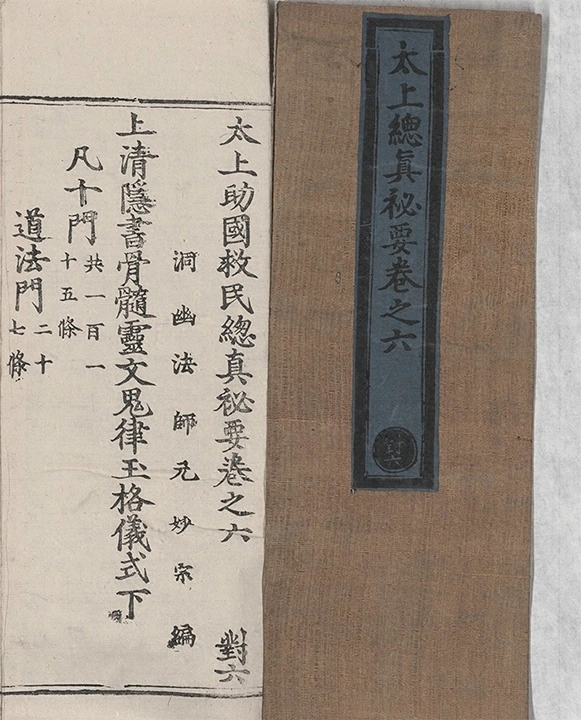 太上總眞祕要卷之六
對六
太上助國救民總真祕要卷之六 對六
洞幽法師元妙宗編
上清隱書骨髓靈文鬼律玉格儀式下
凡十門 共一百一十五條
道法門 二十七條